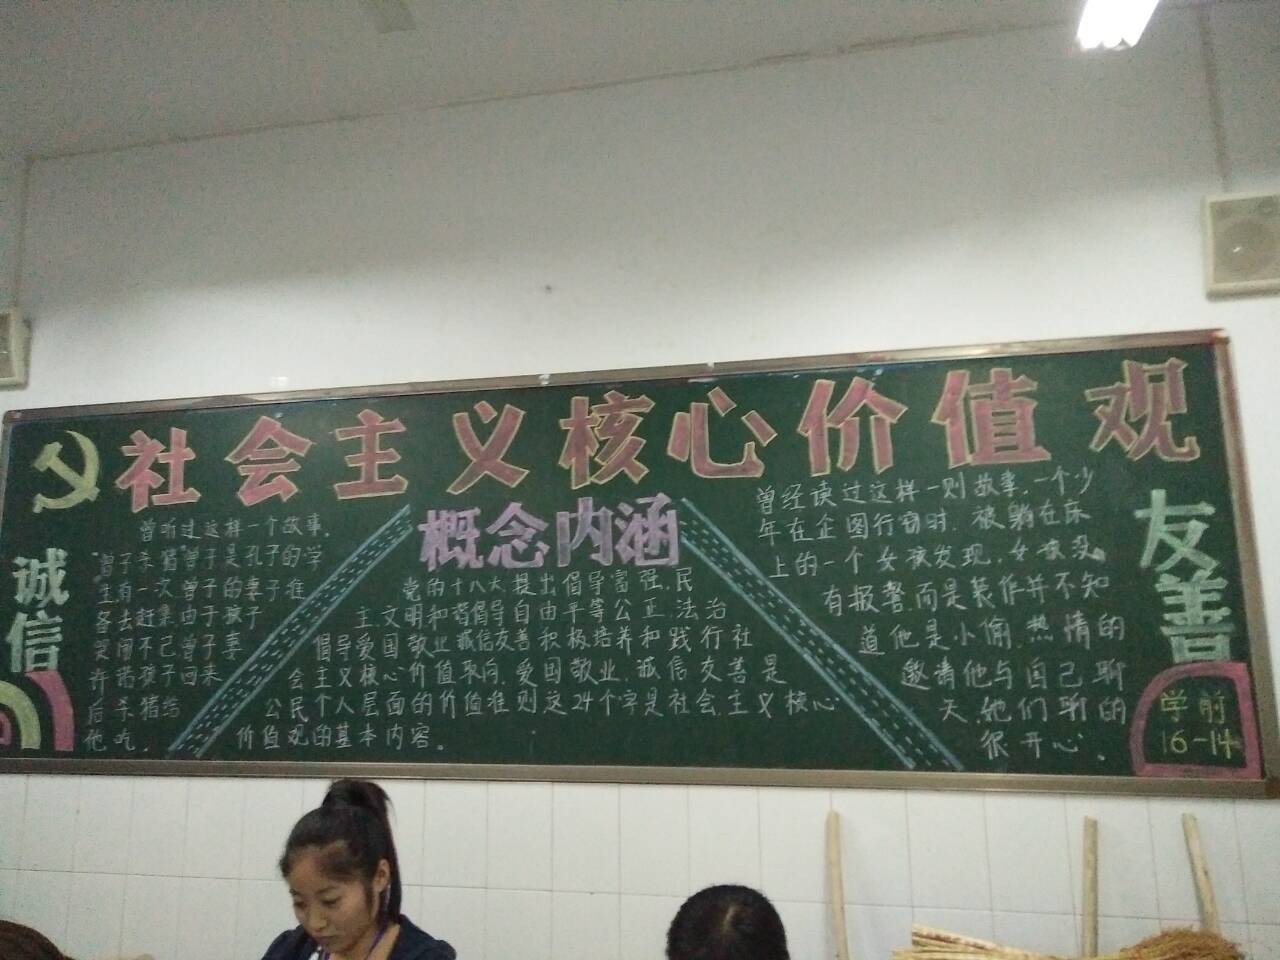 社会主义核心价值观
诚信
曾听过这样一个故事,
"曾子杀猪"曾子是孔子的学
生有一次曾子的妻子准
备去赶集由于孩子
哭闹不已曾子妻
许诺孩子回来
后杀猪给
他吃.
概念内涵
党的十八大提出倡导富强,民
主文明和谐倡导自由平等公正,法治
倡导爱国敬业诚信友善积极培养和践行社
会主义核心价值取向,爱国敬业,诚信友善是
公民个人层面的价值准则这24个字是社会主义核心
价值观的基本内容。
曾经读过这样一则故事,一个少
年在企图行窃时,被躺在床
上的一个女孩发现,女孩没
有报警而是装作并不知
道他是小偷,热情的
邀请他与自己聊
天,他们聊的
很开心.
友善
学前
16-14